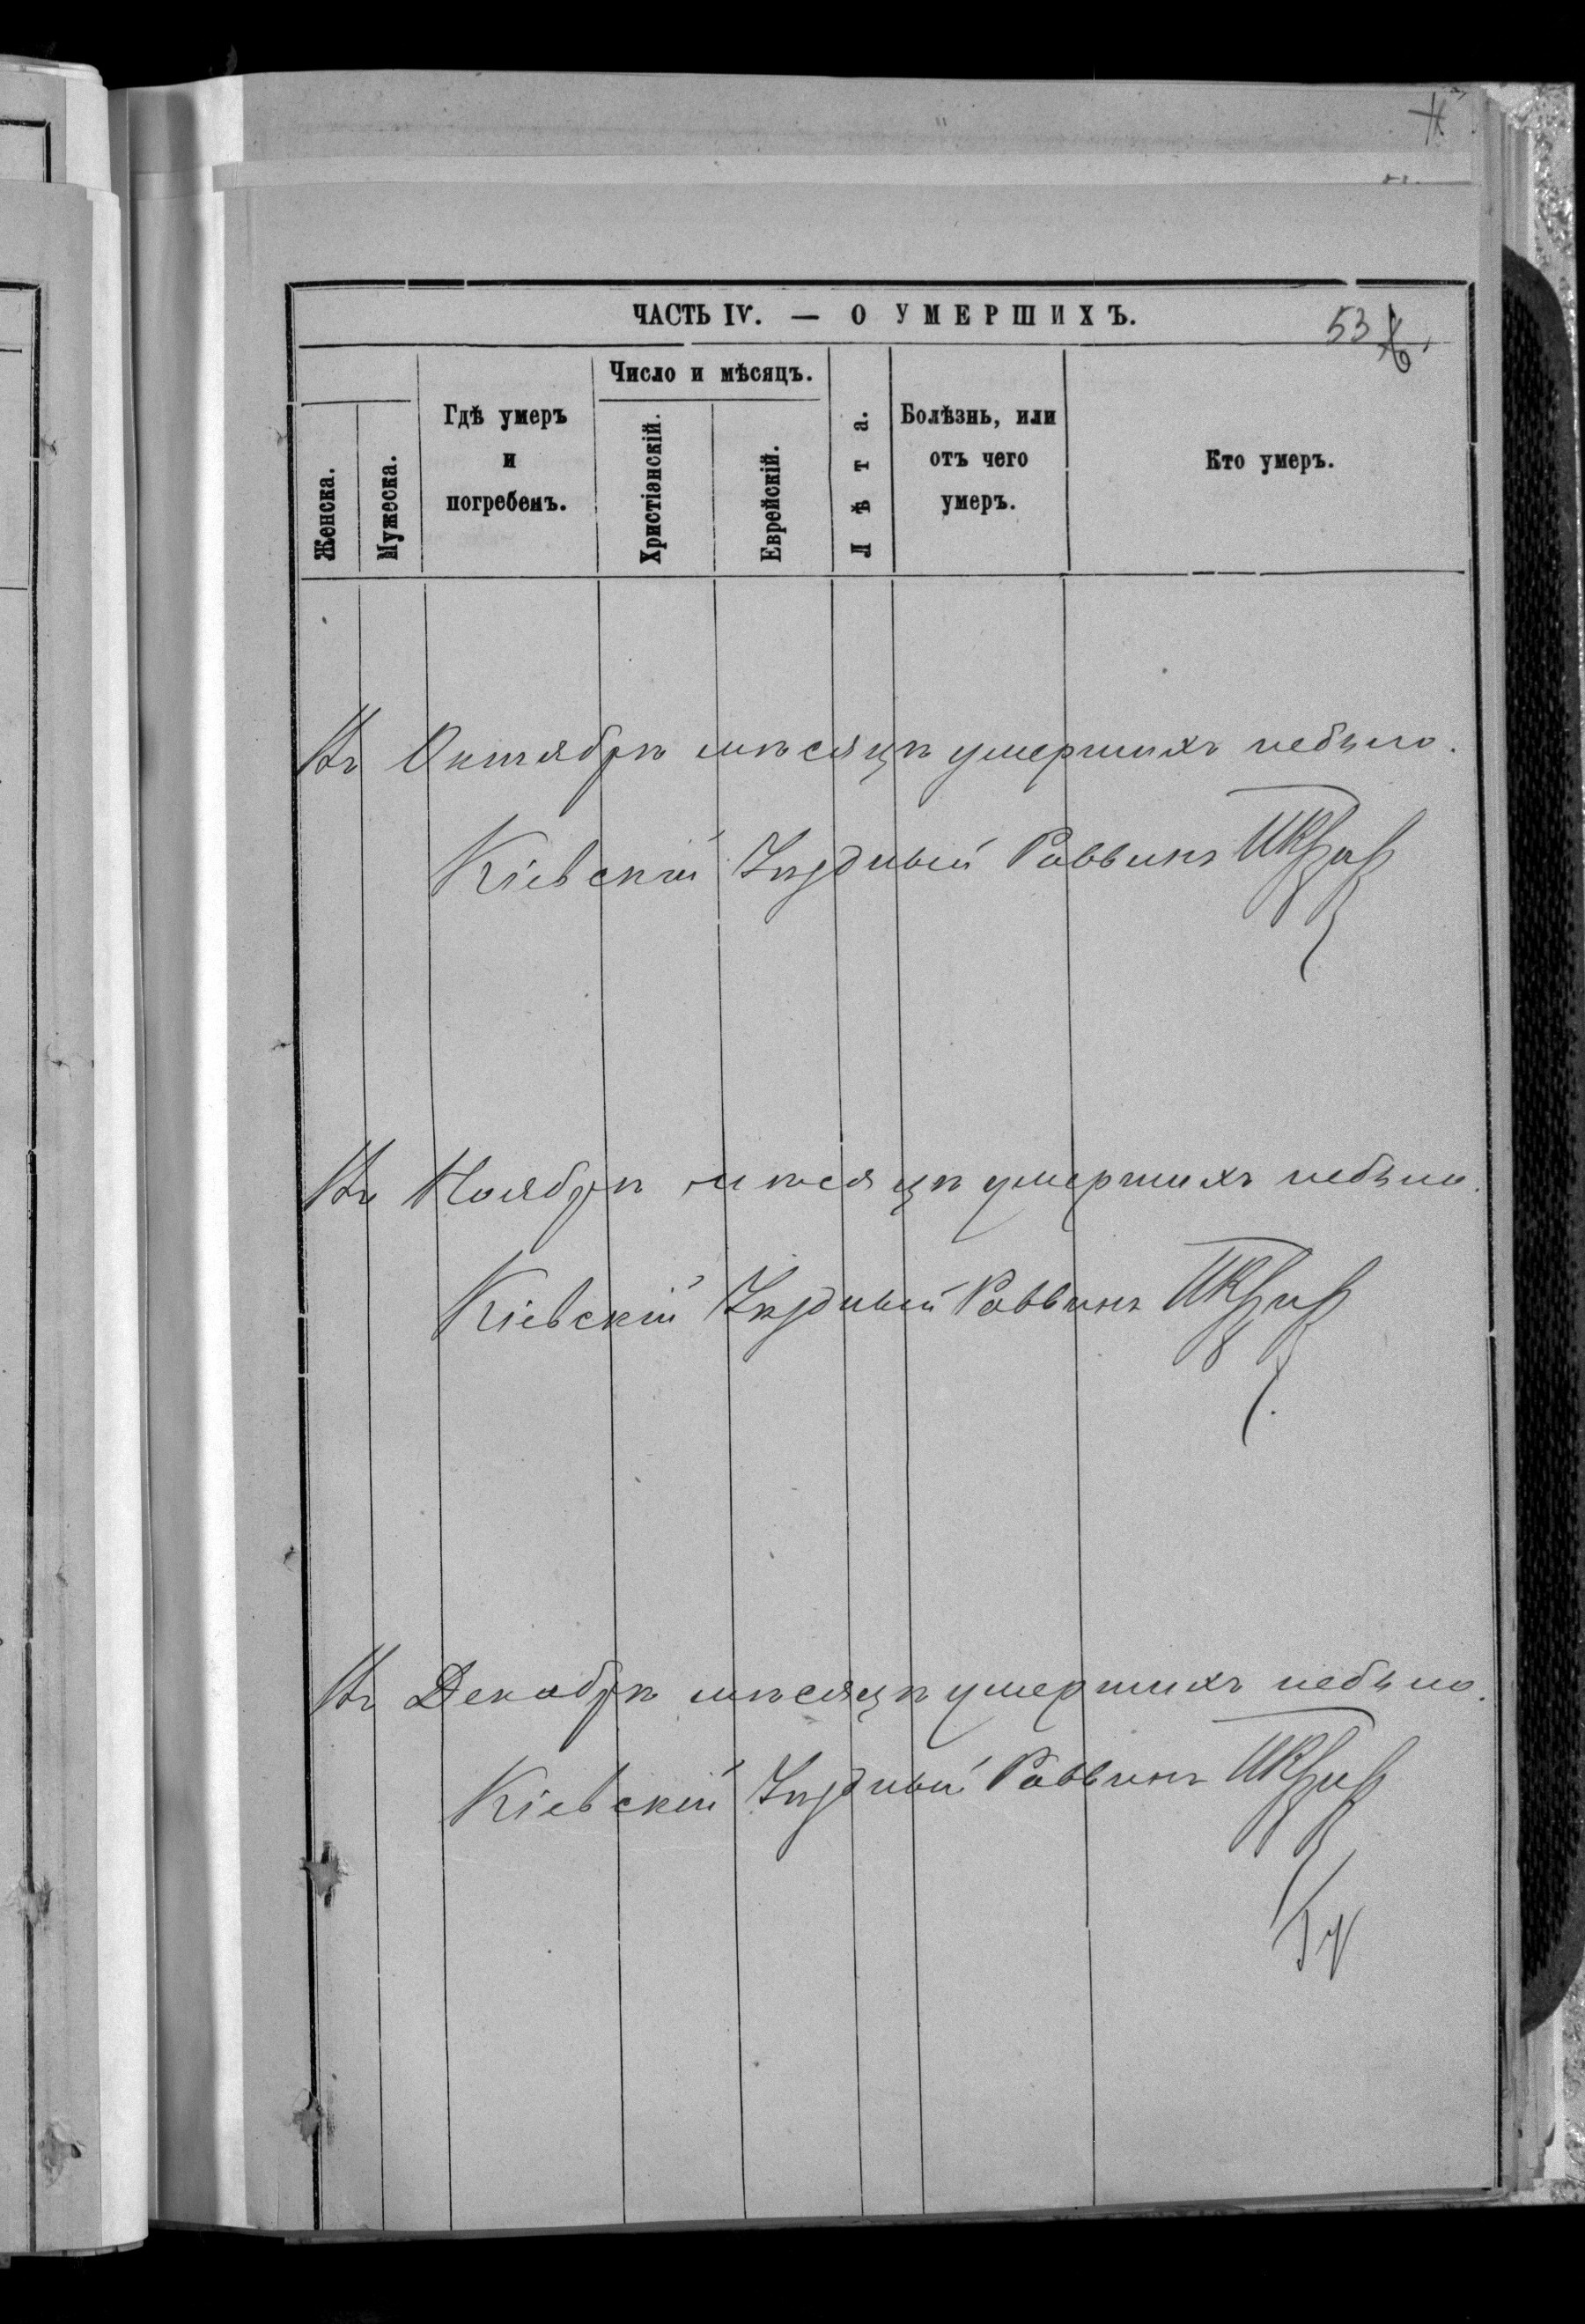 ЧАСТЬ IV. — О УМЕРШИХЪ.
53
Женска.
Мужеска.
Гдѣ умеръ
и
погребенъ.
Число и мѣсяцъ.
Христіанскій.
Еврейскій.
Лѣта.
Болѣзнь, или
отъ чего
умеръ.
Кто умеръ.
Въ Октябрѣ мѣсяцѣ умершихъ небыло.
Кіевскій Уѣздный Раввинъ
Въ Ноябрѣ мѣсяцѣ умершихъ небыло.
Кіевскій Уѣздный Раввинъ
Въ Декабрѣ мѣсяцѣ умершихъ небыло.
Кіевскій Уѣздный Раввинъ